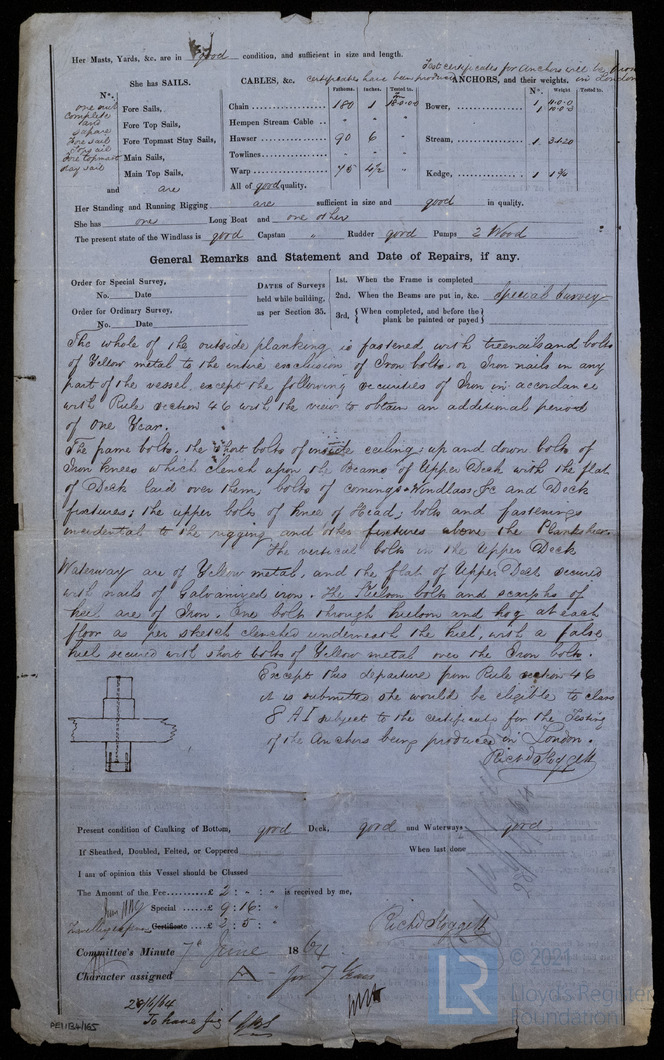 Her Masts, Yards, &c. are in good condition, and sufficient in size and length.
Test certificates for Anchors will be
in London
She has SAILS.
CABLES, &c. certificates have been produced
ANCHORS, and their weights.
N°.
Fathoms. Inches. Tested to
N°. Weight Tested to.
one suit
complete
and
square
Fore sail
Top sail
Fore topmast
stay sail
Fore Sails,
Fore Top Sails,
Fore Topmast Stay Sails,
Main Sails,
Main Top Sails,
and are
Chain 180 1 18.0.00
Hempen Stream Cable
Hawser 90 6
Towlines
Warp 75 4½
All of good quality.
Bower, 1 4.0.0
1
Stream, 1 3420
Kedge, 1 1¾
Her Standing and Running Rigging are sufficient in size and good in quality.
She has one Long Boat and one other
The present state of the Windlass is good Capstan " Rudder good Pumps 2 Wood
General Remarks and Statement and Date of Repairs, if any.
Order for Special Survey,
No. Date
Order for Ordinary Survey,
No. Date
DATES of Surveys
held while building,
as per Section 35.
1st. When the Frame is completed
2nd. When the Beams are put in, &c. Special Survey
3rd. { When completed, and before the
plank be painted or payed }
The whole of the outside planking is fastened with treenails and bolts
of Yellow metal to the entire exclusion of Iron bolts or Iron nails in any
part of the vessel, except the following securities of Iron in accordance
with Rule section 46 with the view to obtain an additional period
of one Year.
The frame bolts, the short bolts of inside ceiling; up and down bolts of
Iron knees which clench upon the Beams of Upper Deck with the flat
of Deck laid over them, bolts of comings & Windlass, &c and Deck
fixtures; the upper bolts of knee of Head; bolts and fastenings
incidental to the rigging and other fixtures above the Planksheer.
The vertical bolts in the Upper Deck
Waterway are of Yellow metal, and the flat of Upper Deck secured
with nails of Galvanized iron. The Keelson bolts and scarphs of
keel are of Iron. One bolt through keelson and hog at each
floor as per sketch clenched underneath the keel, with a false
keel secured with short bolts of Yellow metal over the Iron bolts.
Except this departure from Rule section 46
it is submitted she would be eligible to class
8 A 1 subject to the certificate for the Testing
of the Anchors being produced in London.
Richd Hoggett
Present condition of Caulking of Bottom, good Deck, good and Waterways good
If Sheathed, Doubled, Felted, or Coppered When last done
I am of opinion this Vessel should be Classed
The Amount of the Fee £ 2 : - : - is received by me,
Special £ 9 : 16 :
Travelling expenses Certificate £ 2 : 5 :
Richd Hoggett
Committee's Minute 7th June 1864
Character assigned A - for 7 Years
28/6/64
28/6/64
To have
PE1134/165
© 2021
LR
Lloyd's Register
Foundation